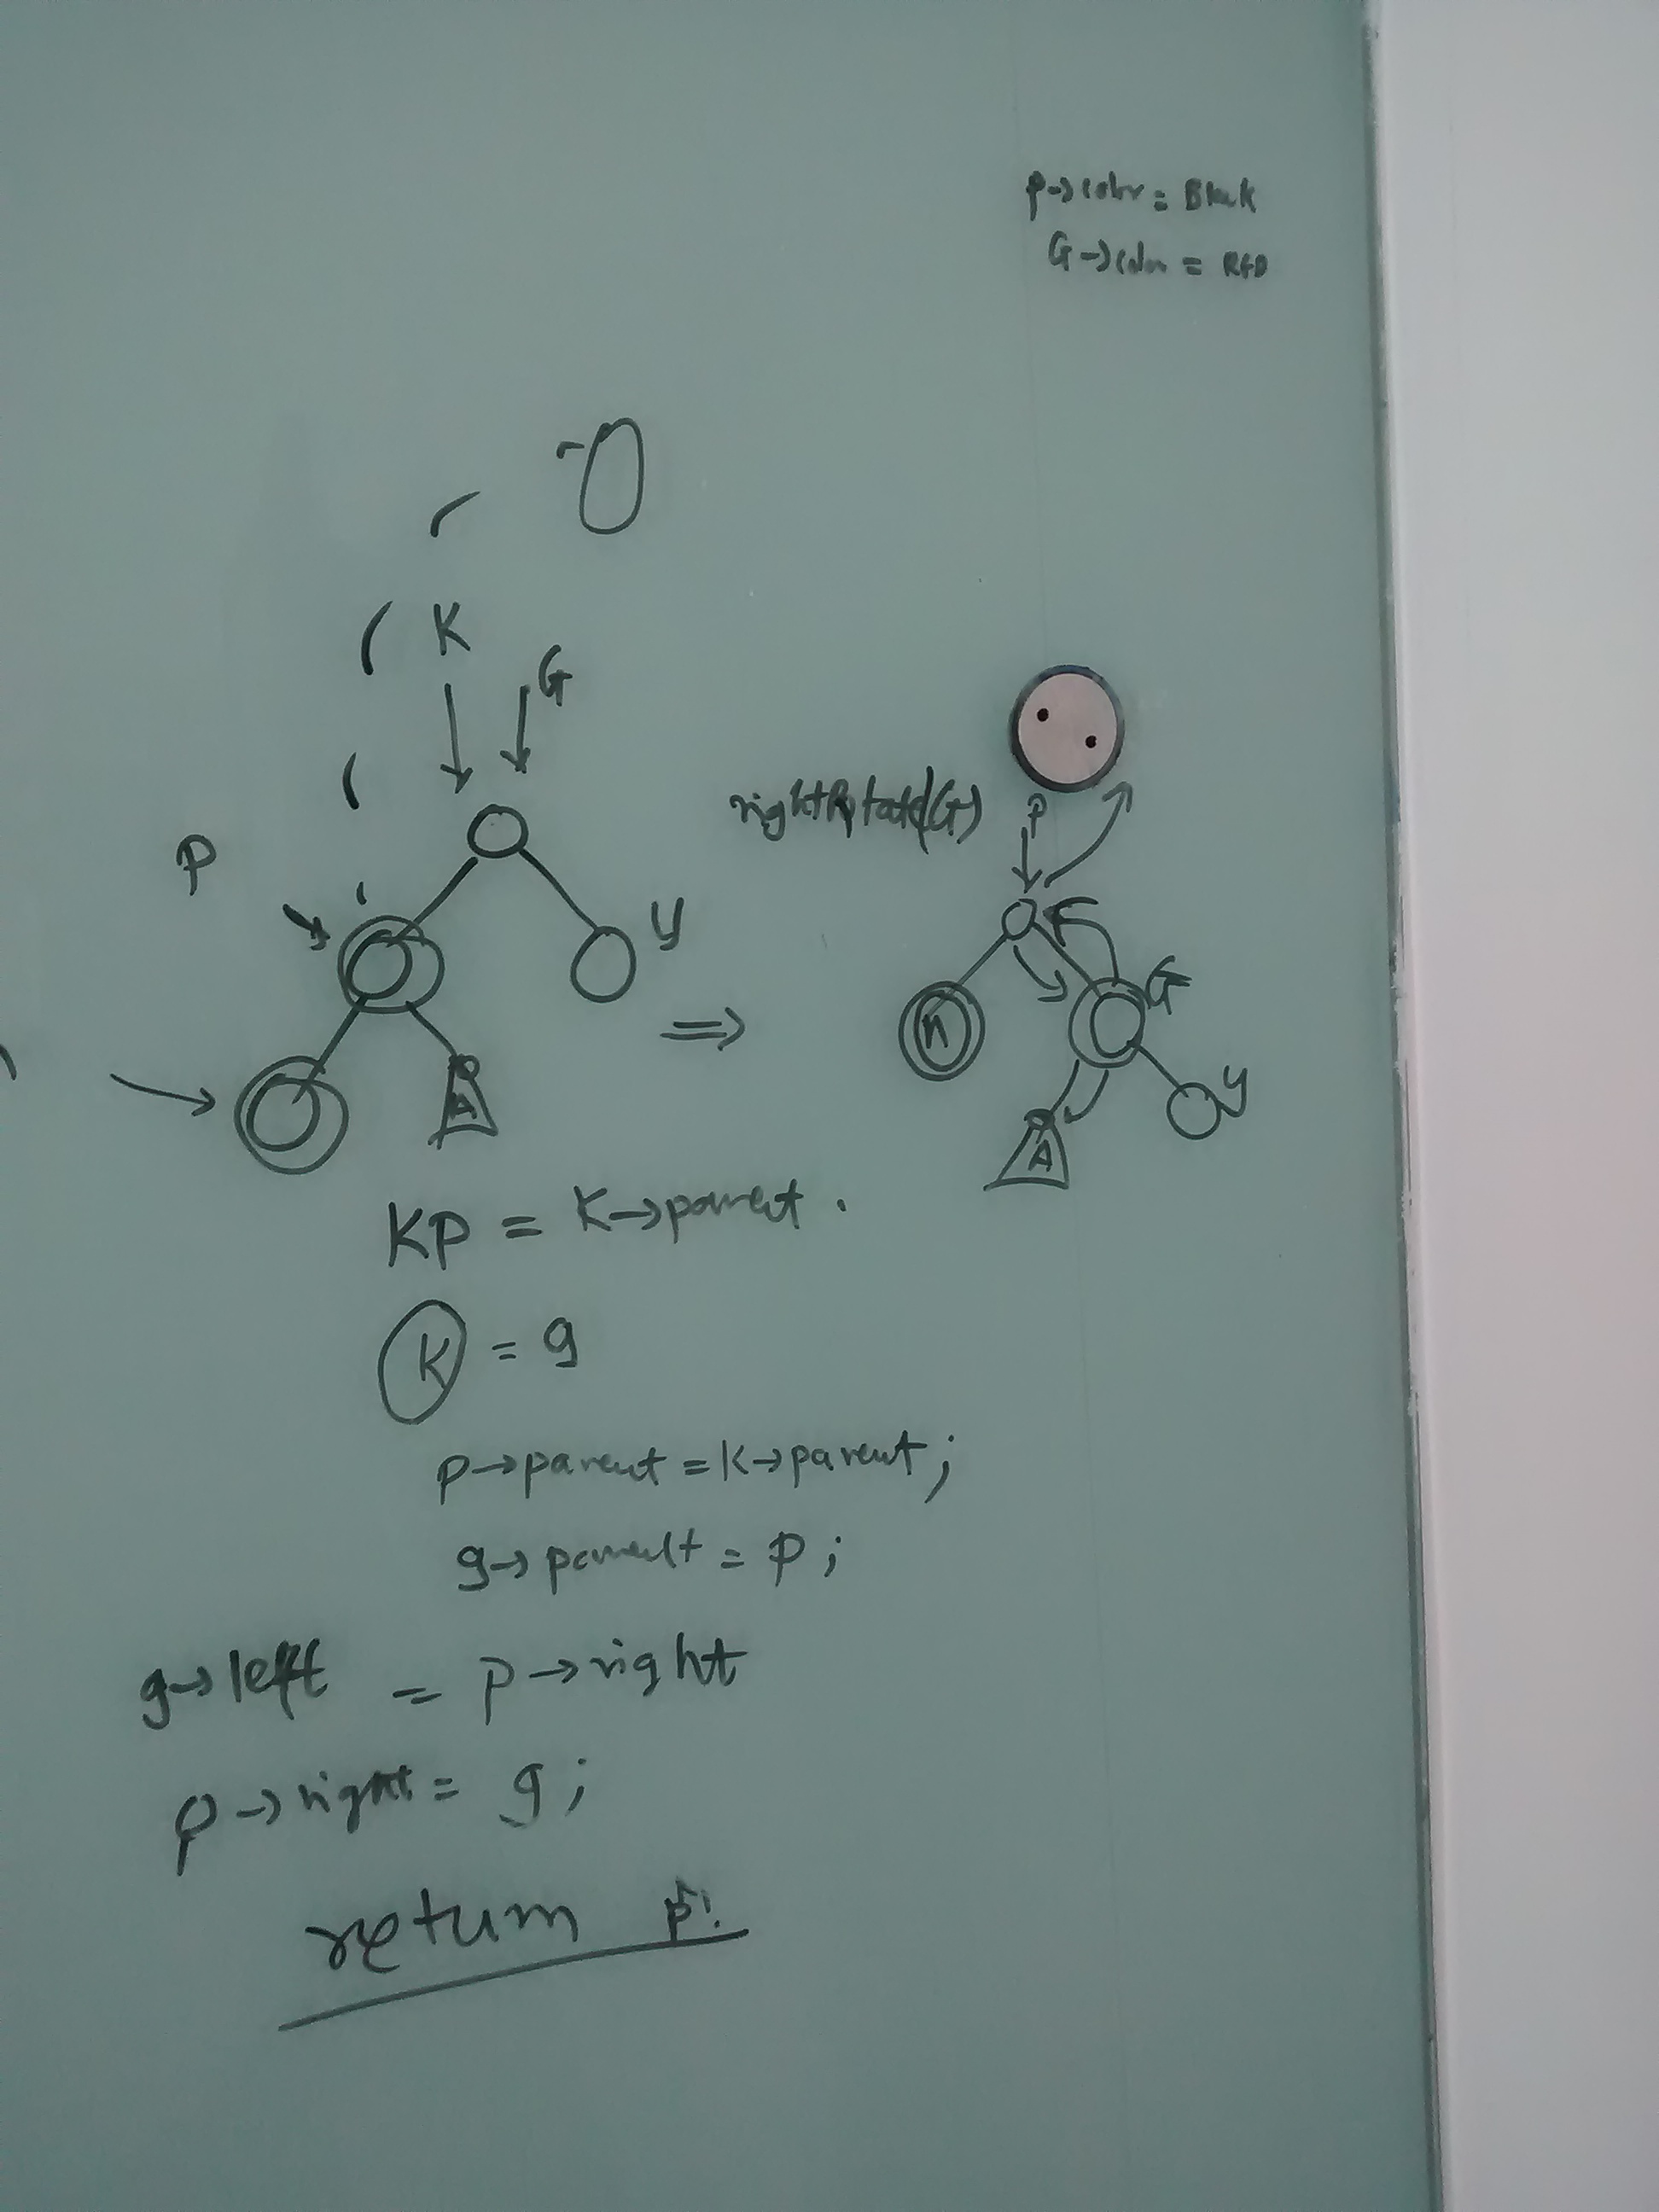 P→color = Black
G→color = RED
K
G
rightRotate(G)
P
P
y
G
n
y
A
A
KP = K→parent.
K = g
P→parent = K→parent;
g→parent = P;
g→left = P→right
P→right = g;
return p;